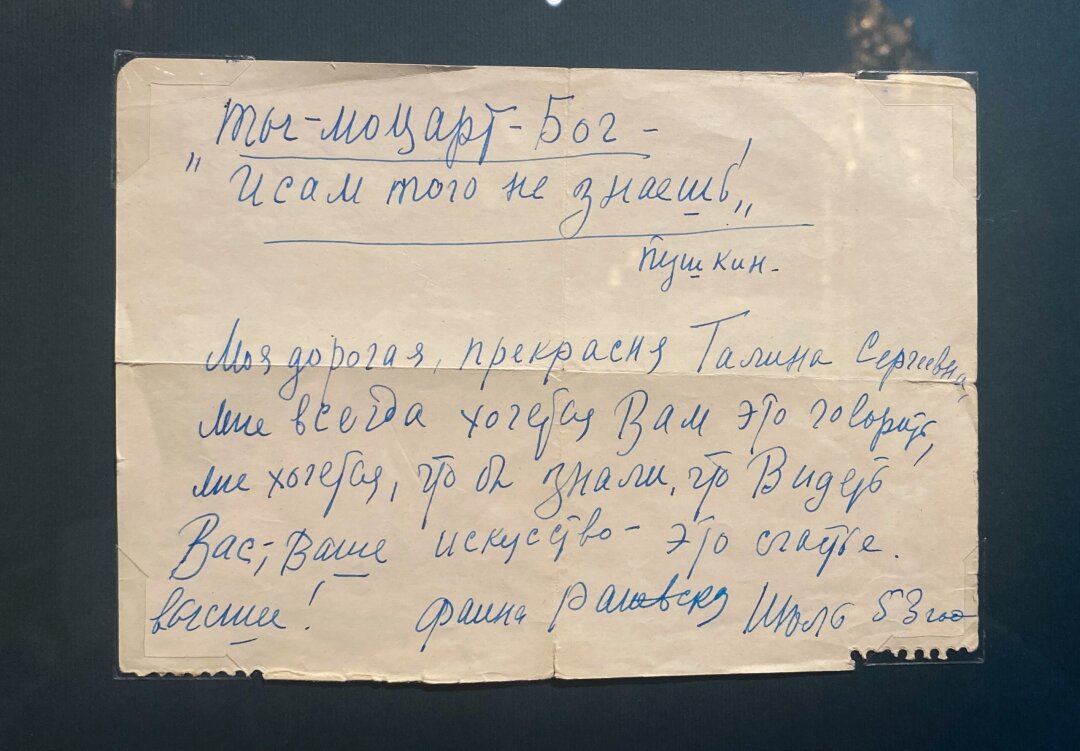 Ты - Моцарт - Бог -
„ И сам того не знаешь!„
Пушкин.
Моя дорогая, прекрасня Галина Сергеевна,
мне всегда хочется Вам это говорить,
мне хочется, что бы знали, что Видеть
Вас, Ваше искусство - это счастье.
высшее! Фаина Раневская Июль 53 год